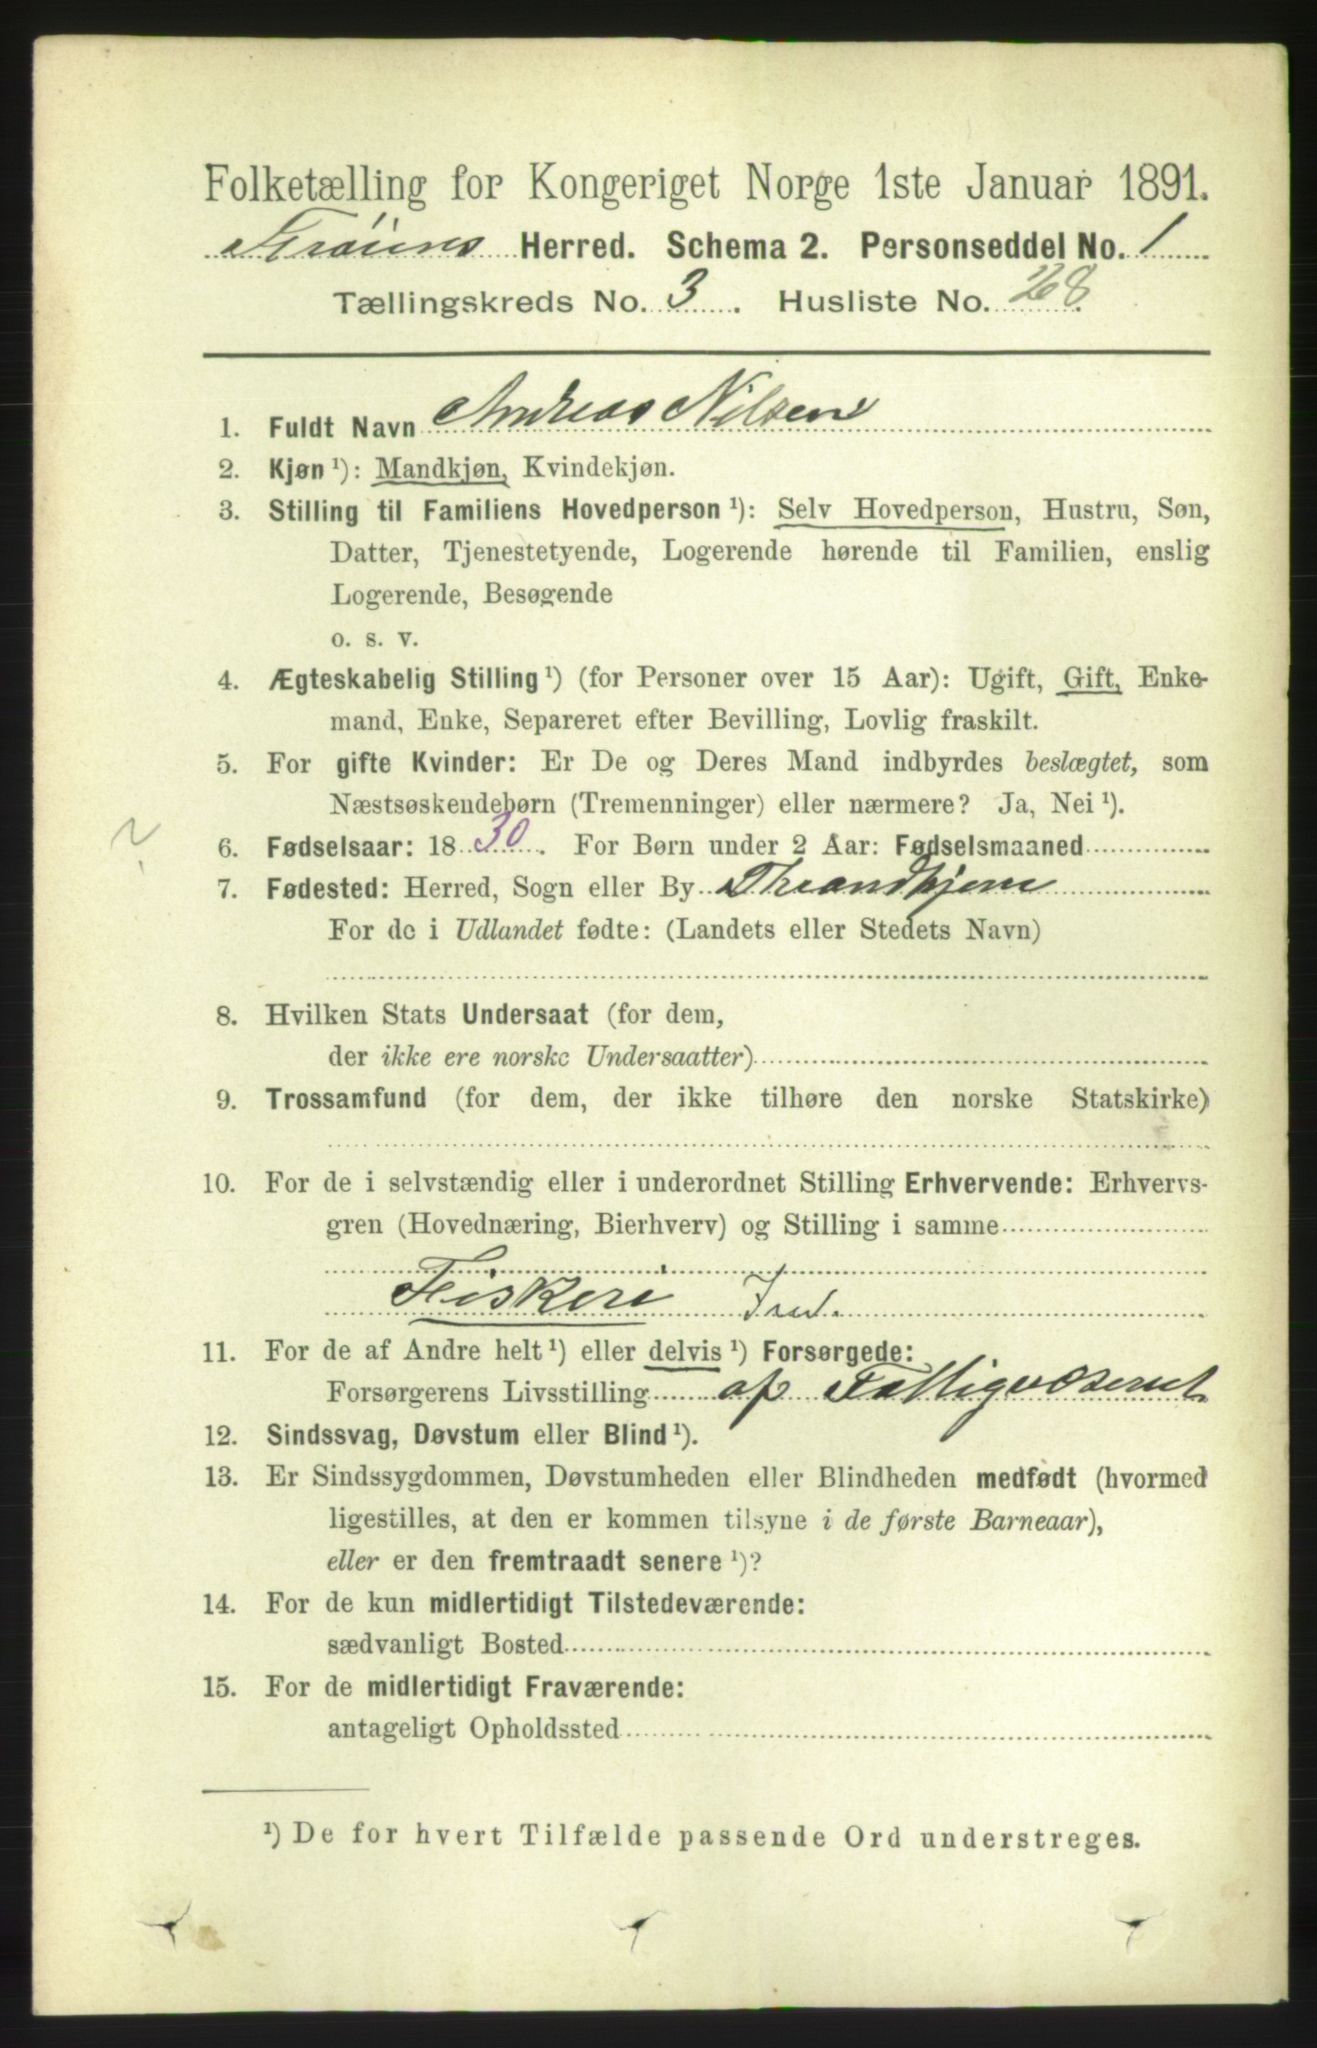 Folketælling for Kongeriget Norge 1ste Januar 1891.
Frøiens Herred. Schema 2. Personseddel No. 1
Tællingskreds No. 3. Husliste No. 28
1. Fuldt Navn Andreas Nilsen
2. Kjøn ¹): Mandkjøn, Kvindekjøn.
3. Stilling til Familiens Hovedperson ¹): Selv Hovedperson, Hustru, Søn,
Datter, Tjenestetyende, Logerende hørende til Familien, enslig
Logerende, Besøgende
o. s. v.
4. Ægteskabelig Stilling ¹) (for Personer over 15 Aar): Ugift, Gift, Enke-
mand, Enke, Separeret efter Bevilling, Lovlig fraskilt.
5. For gifte Kvinder: Er De og Deres Mand indbyrdes beslægtet, som
Næstsøskendebørn (Tremenninger) eller nærmere? Ja, Nei ¹).
6. Fødselsaar: 1830. For Børn under 2 Aar: Fødselsmaaned
7. Fødested: Herred, Sogn eller By Throndhjem
For de i Udlandet fødte: (Landets eller Stedets Navn)
8. Hvilken Stats Undersaat (for dem,
der ikke ere norske Undersaatter)
9. Trossamfund (for dem, der ikke tilhøre den norske Statskirke)
10. For de i selvstændig eller i underordnet Stilling Erhvervende: Erhvervs-
gren (Hovednæring, Bierhverv) og Stilling i samme
Fiskeri
11. For de af Andre helt ¹) eller delvis ¹) Forsørgede:
Forsørgerens Livsstilling af Fattigvæsenet
12. Sindssvag, Døvstum eller Blind ¹).
13. Er Sindssygdommen, Døvstumheden eller Blindheden medfødt (hvormed
ligestilles, at den er kommen tilsyne i de første Barneaar),
eller er den fremtraadt senere ¹)?
14. For de kun midlertidigt Tilstedeværende:
sædvanligt Bosted
15. For de midlertidigt Fraværende:
antageligt Opholdssted
¹) De for hvert Tilfælde passende Ord understreges.